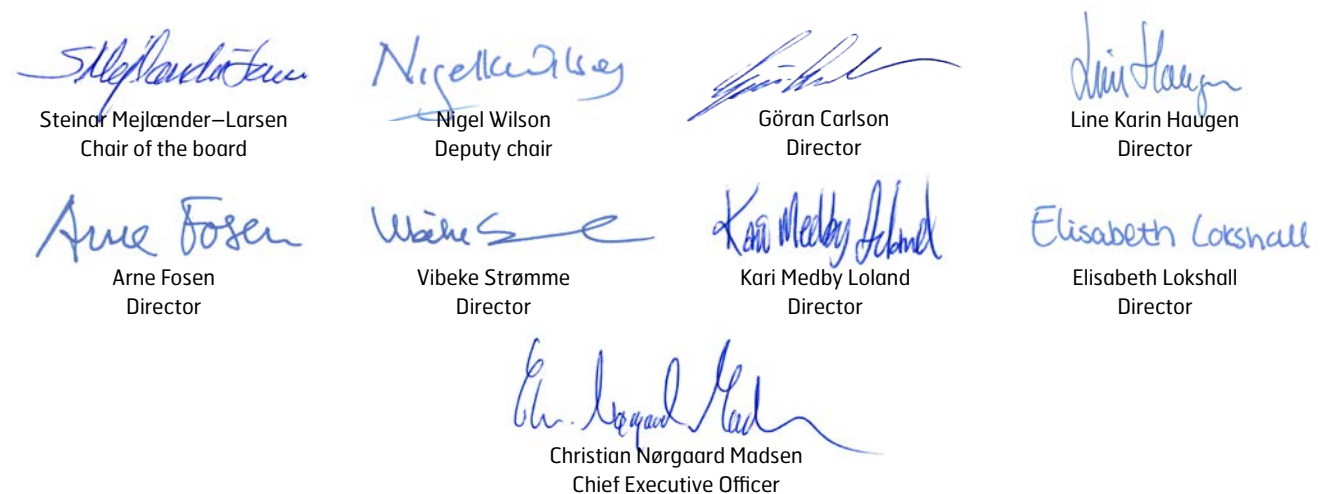 Steinar Mejlænder–Larsen
Chair of the board
Nigel Wilson
Deputy chair
Göran Carlson
Director
Line Karin Haugen
Director
Arne Fosen
Arne Fosen
Director
Vibeke Strømme
Director
Kari Medby Loland
Director
Elisabeth Lokshall
Elisabeth Lokshall
Director
Christian Nørgaard Madsen
Chief Executive Officer